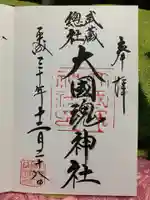 奉拝
武蔵
總社
大國魂神社
平成三十年十二月二十八日